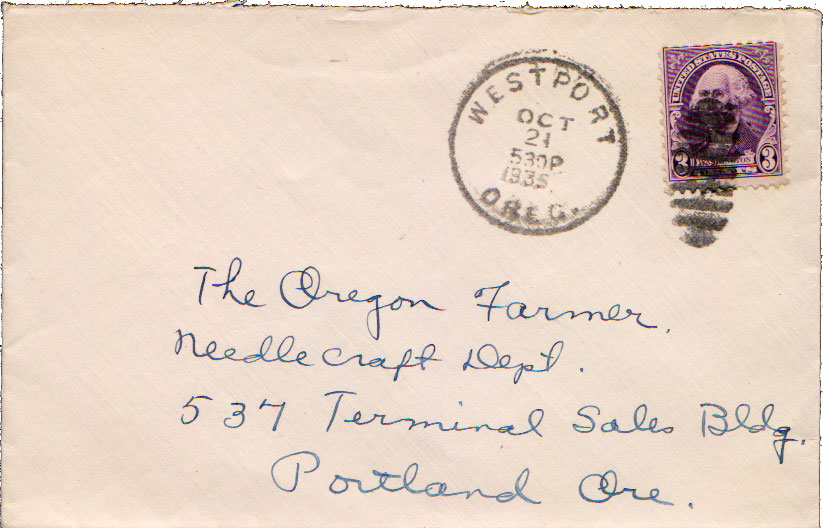 WESTPORT
OCT
21
530P
1935
OREG.
UNITED STATES POSTAGE
3 WASHINGTON 3
The Oregon Farmer.
Needlecraft Dept.
537 Terminal Sales Bldg.
Portland Ore.